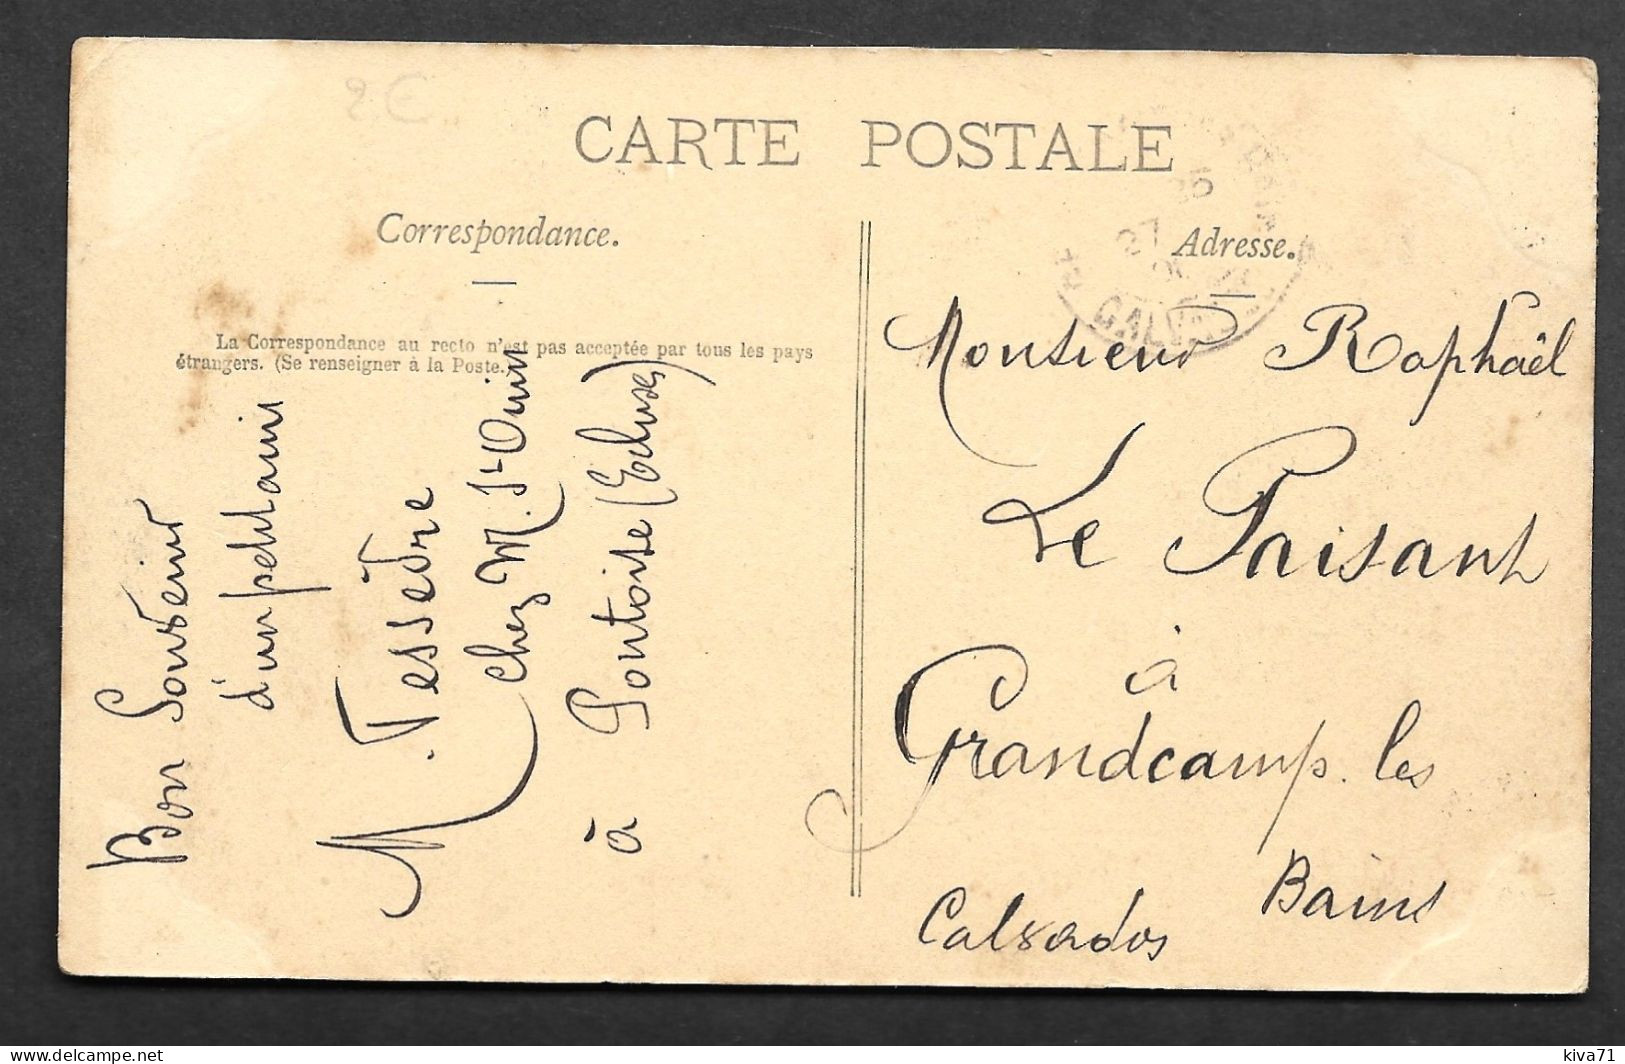 2€
CARTE POSTALE
Correspondance.
Adresse.
La Correspondance au recto n'est pas acceptée par tous les pays
étrangers. (Se renseigner à la Poste.)
Bon Souvenir
d'un petit ami
M. Tessèdre
chez M. St-Ouin
à Pontoise (Ecluse)
27
CALVADOS
Monsieur Raphaël
Le Paisant
à
Grandcamp. les
Bains
Calvados
delcampe.net
kiva71